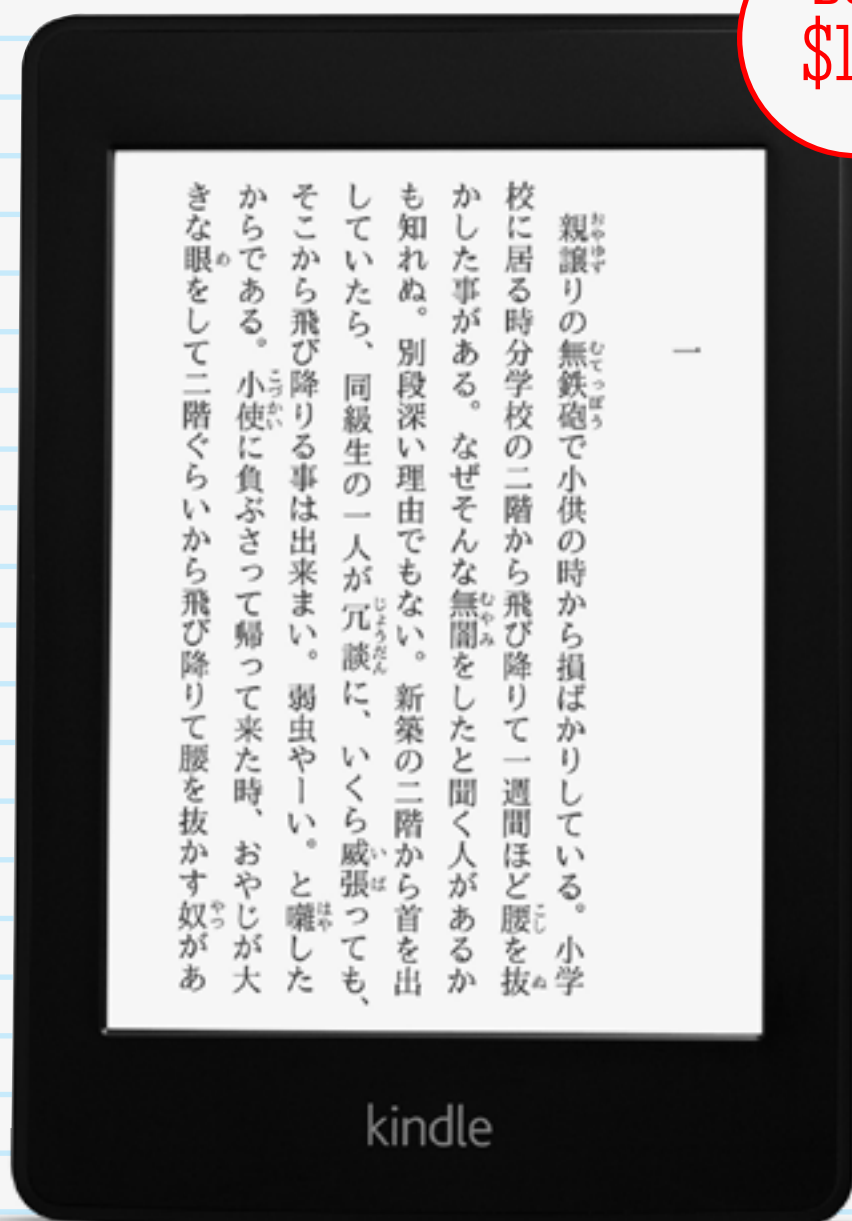 $1
一
親譲りの無鉄砲で小供の時から損ばかりしている。小学
校に居る時分学校の二階から飛び降りて一週間ほど腰を抜
かした事がある。なぜそんな無闇をしたと聞く人があるか
も知れぬ。別段深い理由でもない。新築の二階から首を出
していたら、同級生の一人が冗談に、いくら威張っても、
そこから飛び降りる事は出来まい。弱虫やーい。と囃した
からである。小使に負ぶさって帰って来た時、おやじが大
きな眼をして二階ぐらいから飛び降りて腰を抜かす奴があ
kindle